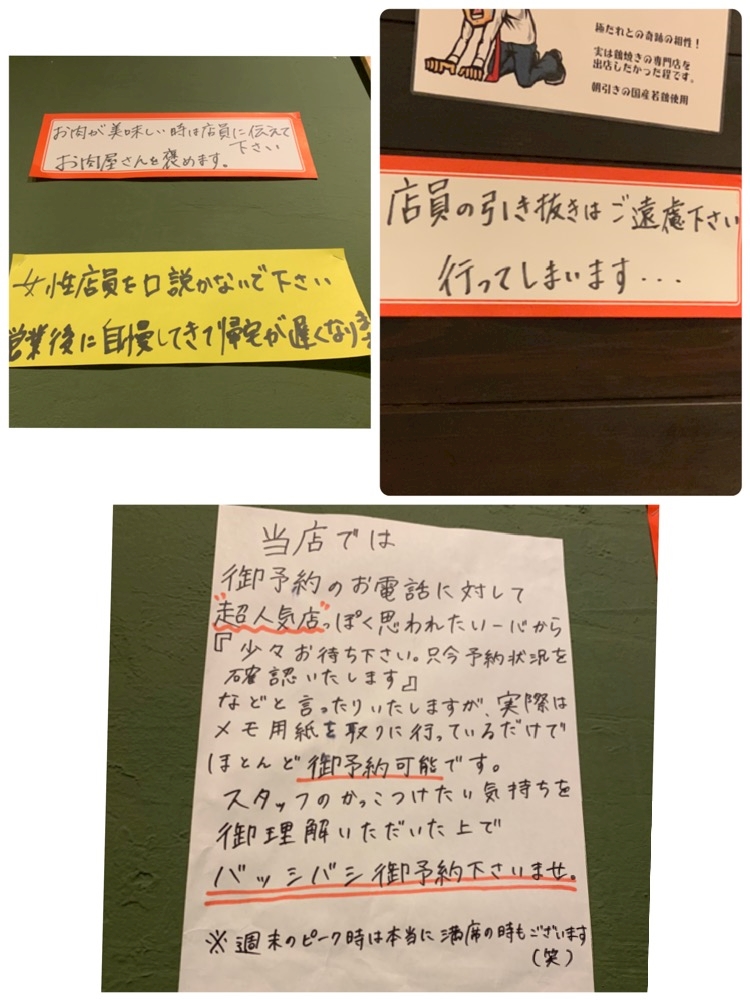 お肉が美味しい時は店員に伝えて
下さい
お肉屋さんを褒めます。
女性店員を口説かないで下さい
営業後に自慢してきて帰宅が遅くなります
極だれとの奇跡の相性！
実は鶏焼きの専門店を
出店したかった程です。
朝引きの国産若鶏使用
店員の引き抜きはご遠慮下さい
行ってしまいます・・・
当店では
御予約のお電話に対して
"超人気店"っぽく思われたい一心から
『少々お待ち下さい。只今予約状況を
確認いたします』
などと言ったりいたしますが、実際は
メモ用紙を取りに行っているだけで
ほとんど御予約可能です。
スタッフのかっこつけたい気持ちを
御理解いただいた上で
バッシバシ御予約下さいませ。
※週末のピーク時は本当に満席の時もございます
(笑)